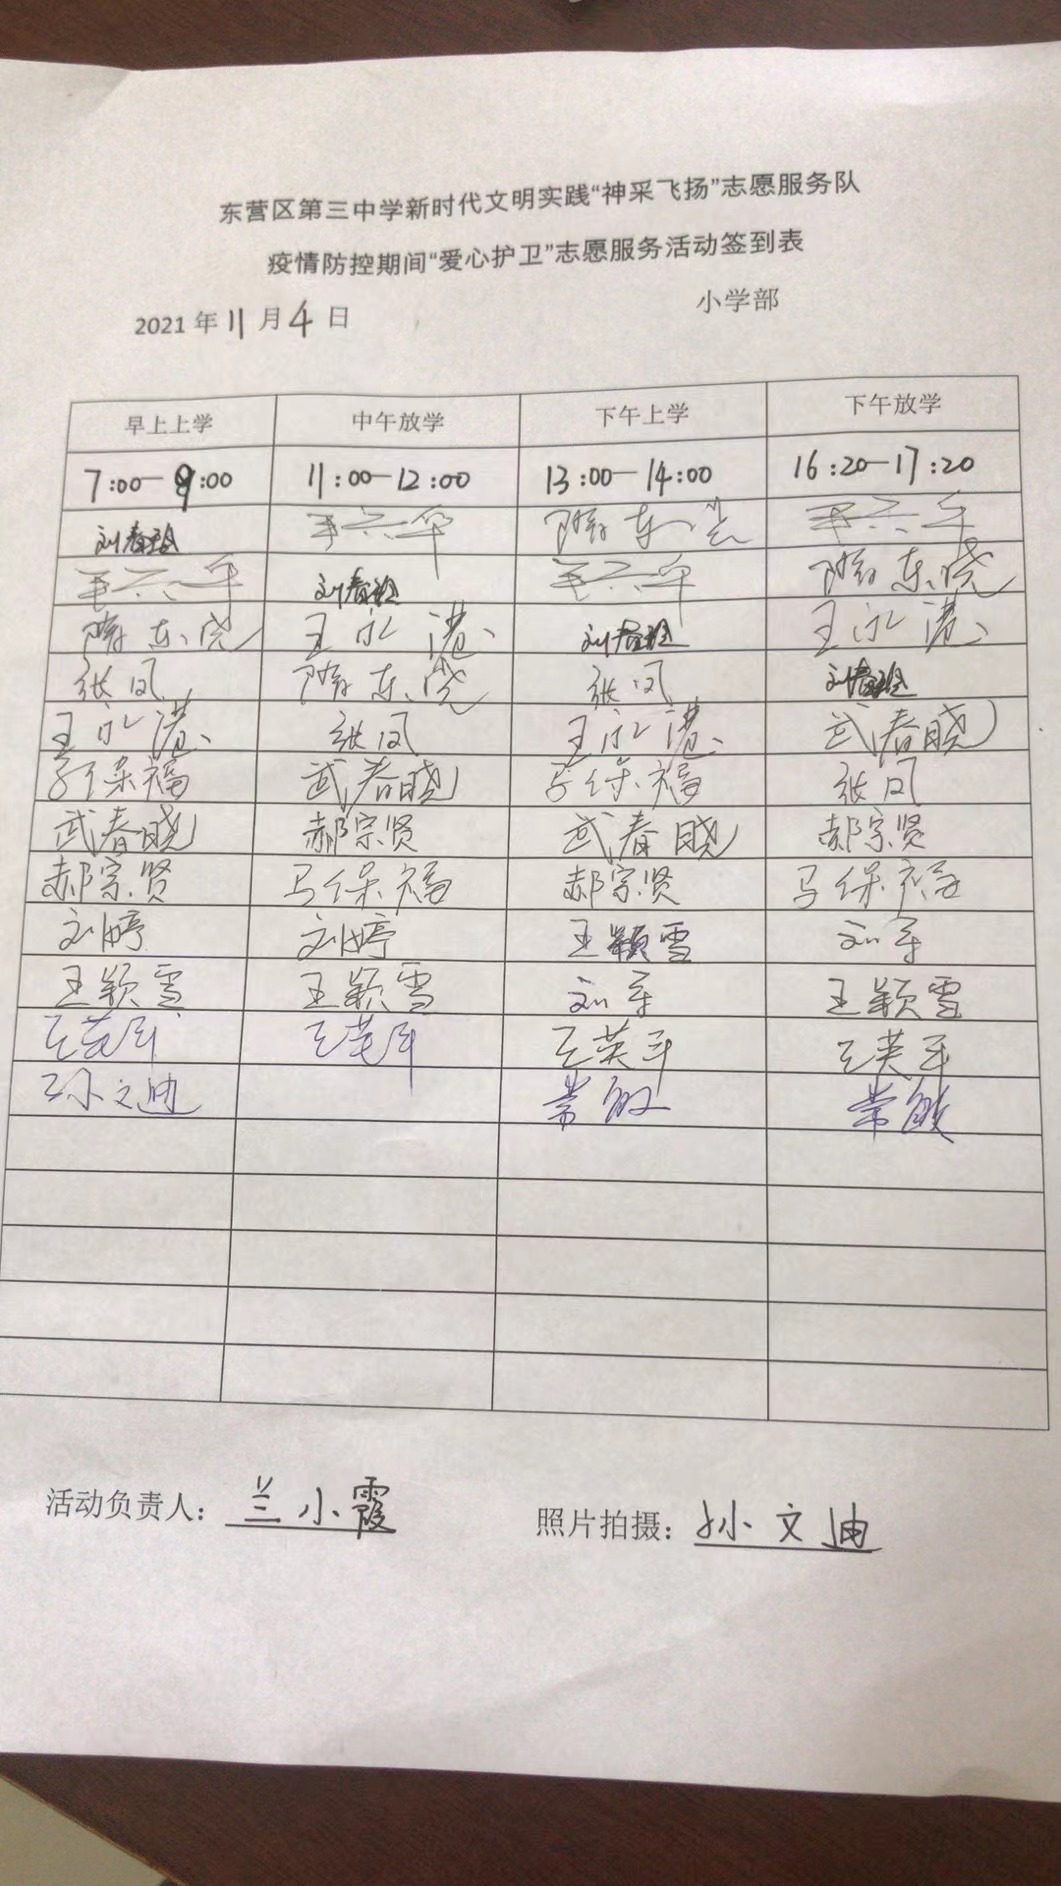 东营区第三中学新时代文明实践“神采飞扬”志愿服务队
疫情防控期间“爱心护卫”志愿服务活动签到表
2021年11月4日 小学部
早上上学 中午放学 下午上学 下午放学
7:00—9:00 11:00—12:00 13:00—14:00 16:20—17:20
隋东晓
隋东晓
隋东晓 王永港 王永港
张凤 隋东晓 张凤
王永港 张凤 王永港 武春晓
马保福 武春晓 马保福 张凤
武春晓 郝宗贤 武春晓 郝宗贤
郝宗贤 马保福 郝宗贤 马保福
刘婷 刘婷 王颖雪 刘军
王颖雪 王颖雪 刘军 王颖雪
王英军 王英军 王英军 王英军
孙文迪 常敏 常敏
活动负责人：兰小霞 照片拍摄：孙文迪